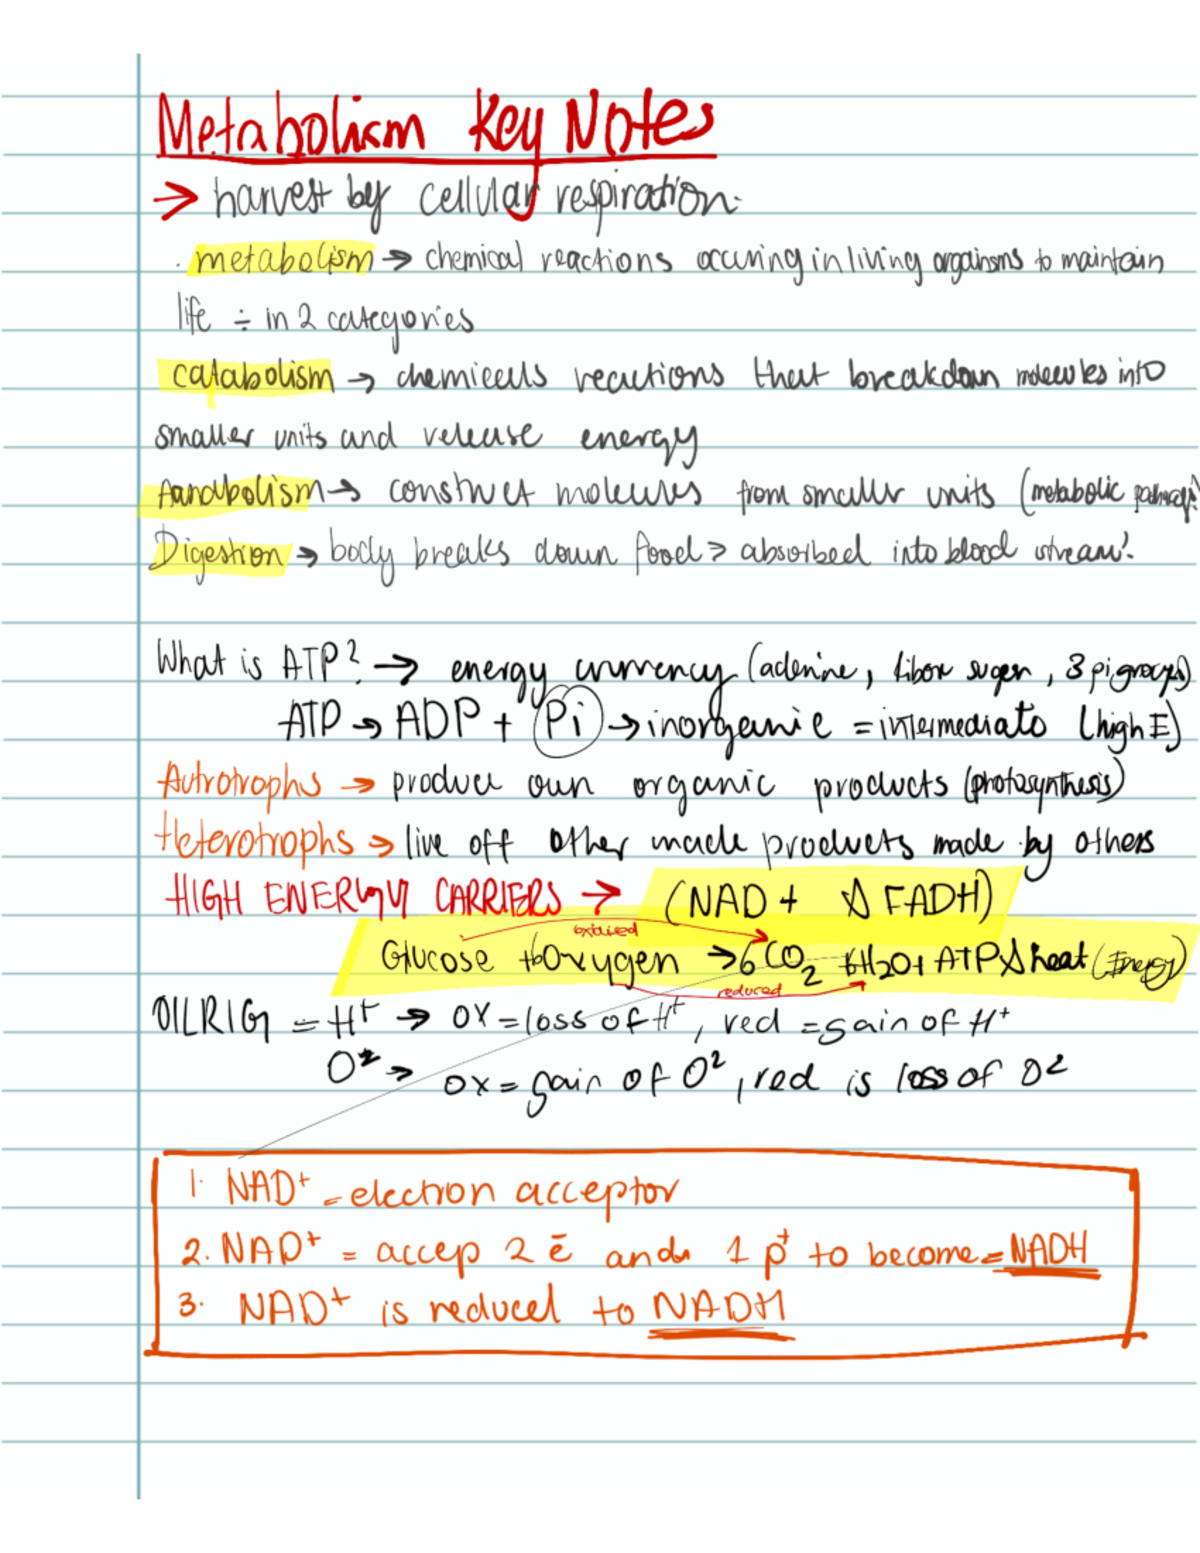 Metabolism Key Notes
→ harvest by cellular respiration.
· metabolism → chemical reactions occuring in living organisms to maintain
life ÷ in 2 categories
Catabolism → chemicals reactions that breakdown molecules into
smaller units and release energy
Aanabolism → construct molecules from smaller units (metabolic pathways)
Digestion → body breaks down food > absorbed into blood stream.
What is ATP? → energy currency (adenine, ribox sugar, 3 pi groups)
ATP → ADP + Pi → inorganic = intermediate (high E)
Autrotrophs → produce own organic products (photosynthesis)
Heterotrophs → live off other made products made by others
HIGH ENERGY CARRIERS → (NAD+ & FADH)
oxidised
Glucose + 6Oxygen → 6CO₂ + 6H₂O + ATP & heat (Energy)
reduced
OILRIG = H⁺ → OX = loss of H⁺, red = gain of H⁺
O² → OX = gain of O², red is loss of O²
1. NAD⁺ = electron acceptor
2. NAD⁺ = accep 2 ē and 1 p⁺ to become = NADH
3. NAD⁺ is reduced to NADH